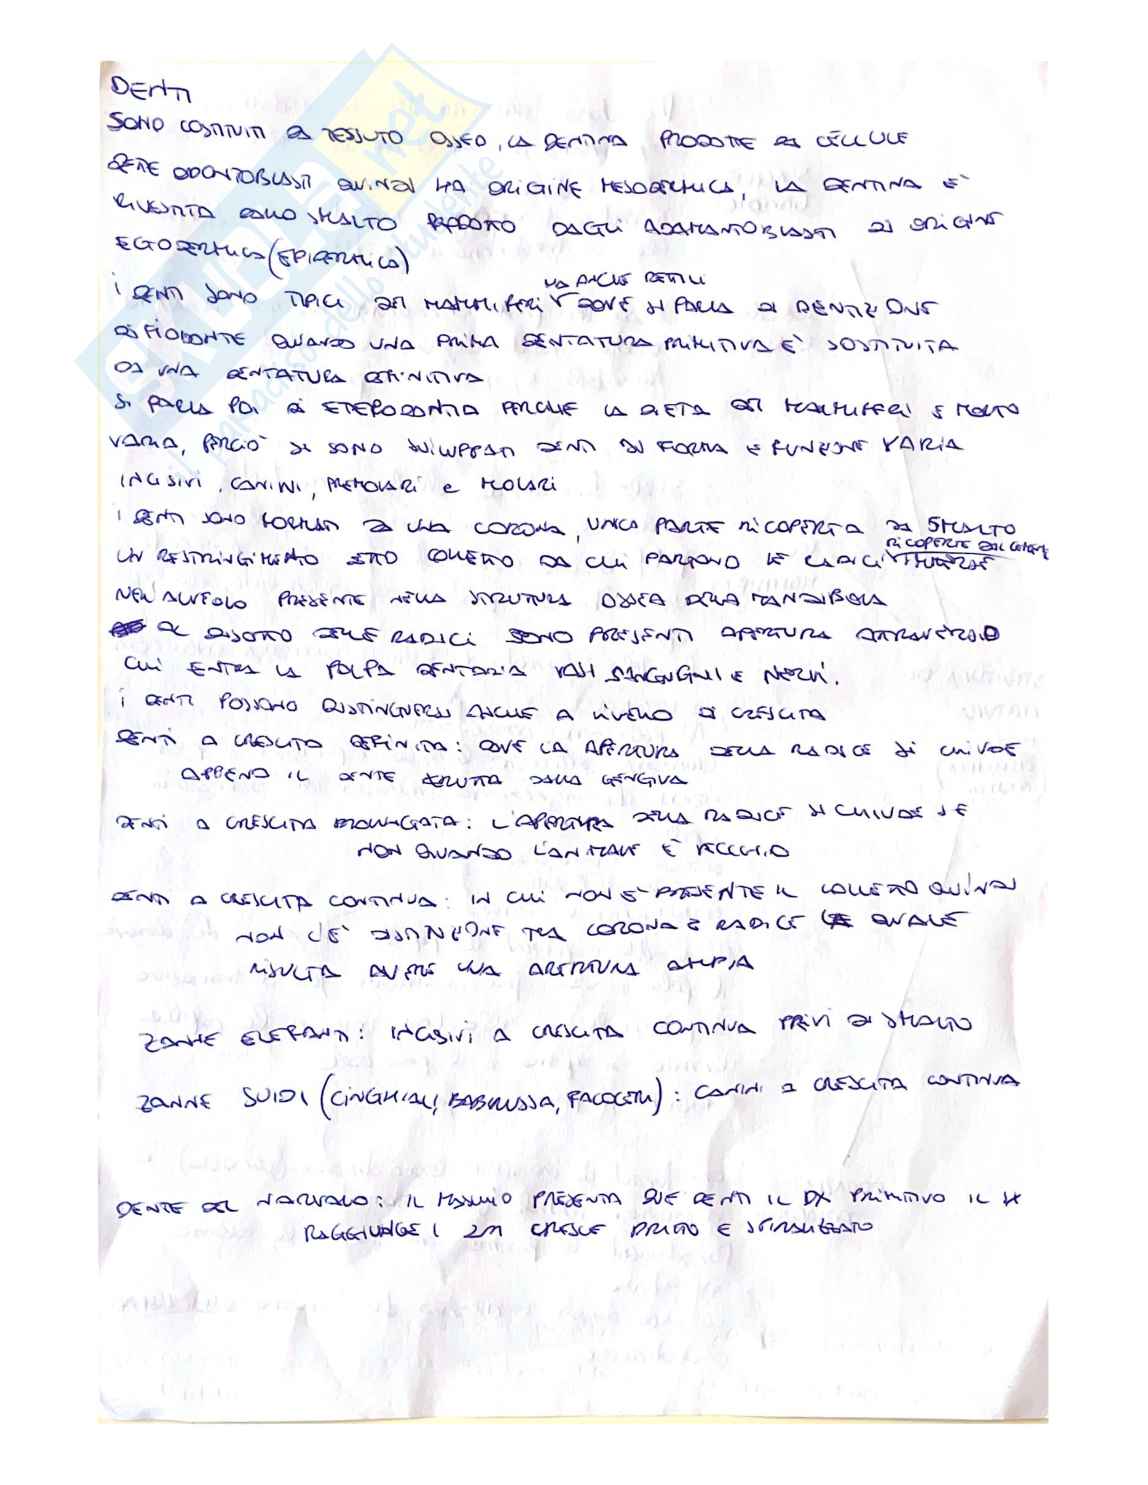 DENTI
SONO COSTITUITI DA TESSUTO OSSEO, LA DENTINA PRODOTTE DA CELLULE
DETTE ODONTOBLASTI QUINDI HA ORIGINE MESODERMICA, LA DENTINA E'
RIVESTITA DALLO SMALTO PRODOTTO DAGLI ADAMANTOBLASTI DI ORIGINE
ECTODERMICA (EPIDERMICA)
MA ANCHE RETTILI
I DENTI SONO TIPICI DEI MAMMIFERI DOVE SI PARLA DI DENTIZIONE
DIFIODONTE QUANDO UNA PRIMA DENTATURA PRIMITIVA E' SOSTITUITA
DA UNA DENTATURA DEFINITIVA
SI PARLA POI DI ETERODONTIA PERCHE LA DIETA DEI MAMMIFERI E MOLTO
VARIA, PERCIO' SI SONO SVILUPPATI DENTI DI FORMA E FUNZIONE VARIA
INCISIVI, CANINI, PREMOLARI e MOLARI
I DENTI SONO FORMATI DA UNA CORONA, UNICA PARTE RICOPERTA DA SMALTO
RICOPERTE DAL CEMENTO
UN RESTRINGIMENTO DETTO COLLETTO DA CUI PARTONO LE RADICI IMMERSE
NELL'ALVEOLO PRESENTE NELLA STRUTTURA OSSEA DELLA MANDIBOLA
AL DISOTTO DELLE RADICI SONO PRESENTI APERTURA ATTRAVERSO
CUI ENTRA LA POLPA DENTARIA VASI SANGUIGNI E NERVI.
I DENTI POSSONO DISTINGUERSI ANCHE A LIVELLO DI CRESCITA
DENTI A CRESCITA DEFINITA: DOVE LA APERTURA DELLA RADICE SI CHIUDE
APPENA IL DENTE ERUTTA DALLA GENGIVA
DENTI A CRESCITA PROLUNGATA: L'APERTURA DELLA RADICE SI CHIUDE SE
NON QUANDO L'ANIMALE E' VECCHIO
DENTI A CRESCITA CONTINUA: IN CUI NON E' PRESENTE IL COLLETTO QUINDI
NON C'E' DISTINZIONE TRA CORONA E RADICE QUALE
RISULTA AVERE UNA APERTURA AMPIA
ZANNE ELEFANTI: INCISIVI A CRESCITA CONTINUA PRIVI DI SMALTO
ZANNE SUIDI (CINGHIALI, BABIRUSSA, FACOCERI): CANINI A CRESCITA CONTINUA
DENTE DEL NARVALO: IL MASCHIO PRESENTA DUE DENTI IL DX PRIMITIVO IL SX
RAGGIUNGE I 2M CRESCE DRITTO E SPIRALIZZATO